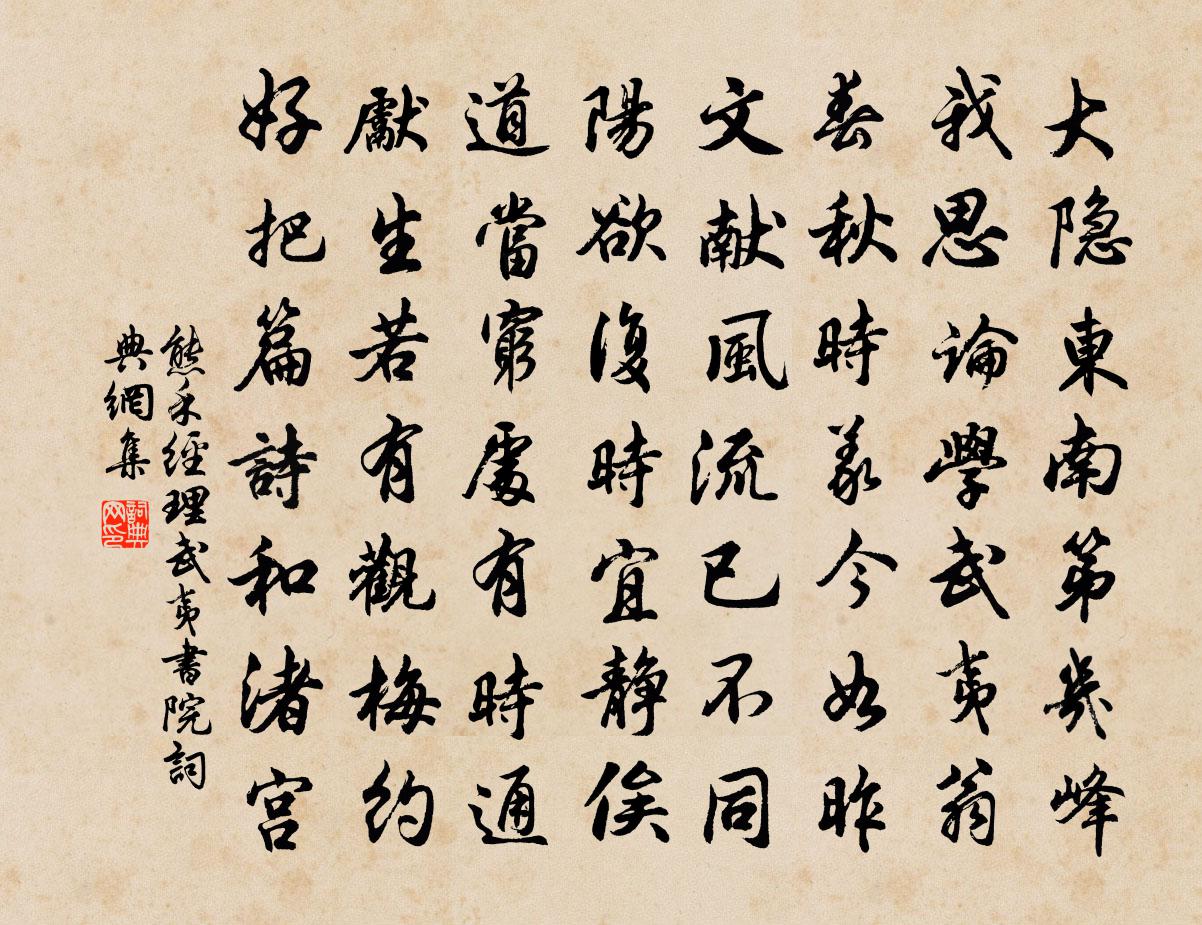 大隐東南第幾峰
我思論學武夷翁
春秋時義今如昨
文献風流已不同
陽欲復時宜静俟
道當窮處有時通
獻生若有觀梅約
好把篇詩和渚宫
熊禾經理武夷書院詞
典網集
詞典
网印